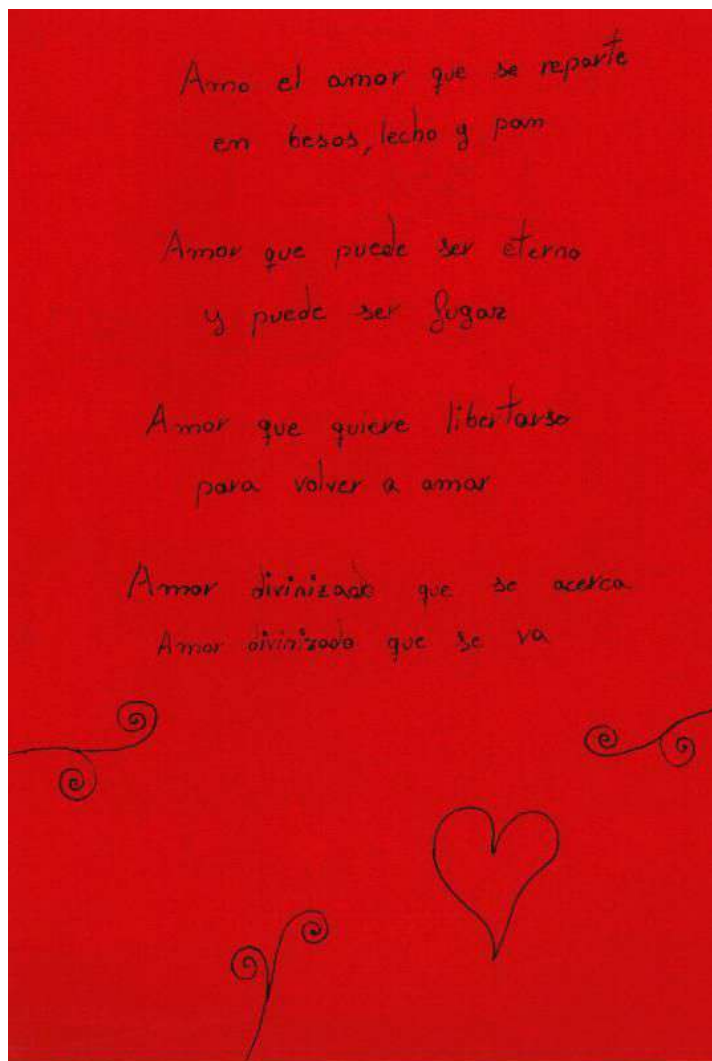 Amo el amor que se reparte
en besos, lecho y pan
Amor que puede ser eterno
y puede ser fugaz
Amor que quiere libertarse
para volver a amar
Amor divinizado que se acerca
Amor divinizado que se va